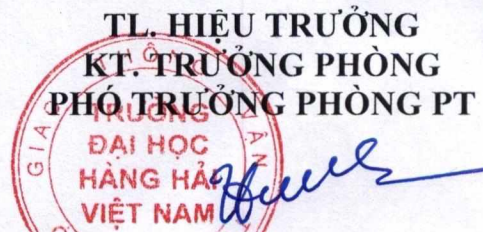 TL. HIỆU TRƯỞNG
KT. TRƯỞNG PHÒNG
PHÓ TRƯỞNG PHÒNG PT
TRƯỜNG
ĐẠI HỌC
HÀNG HẢI
VIỆT NAM